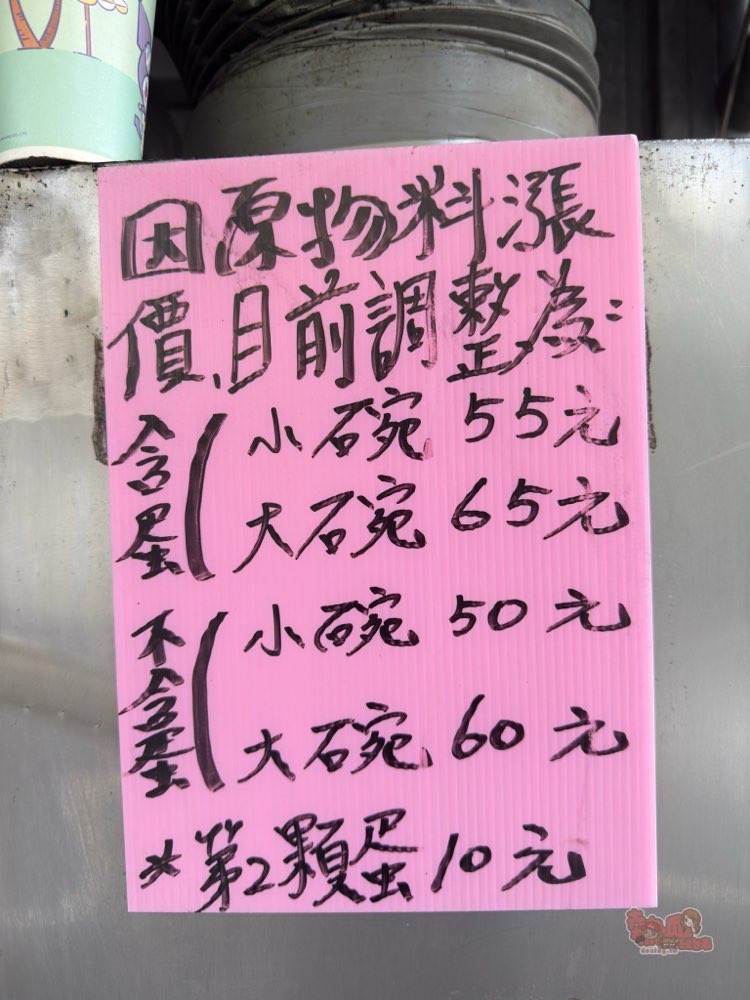 因原物料漲
價,目前調整為:
含蛋
小碗 55元
大碗 65元
不含蛋
小碗 50元
大碗 60元
*第2顆蛋10元